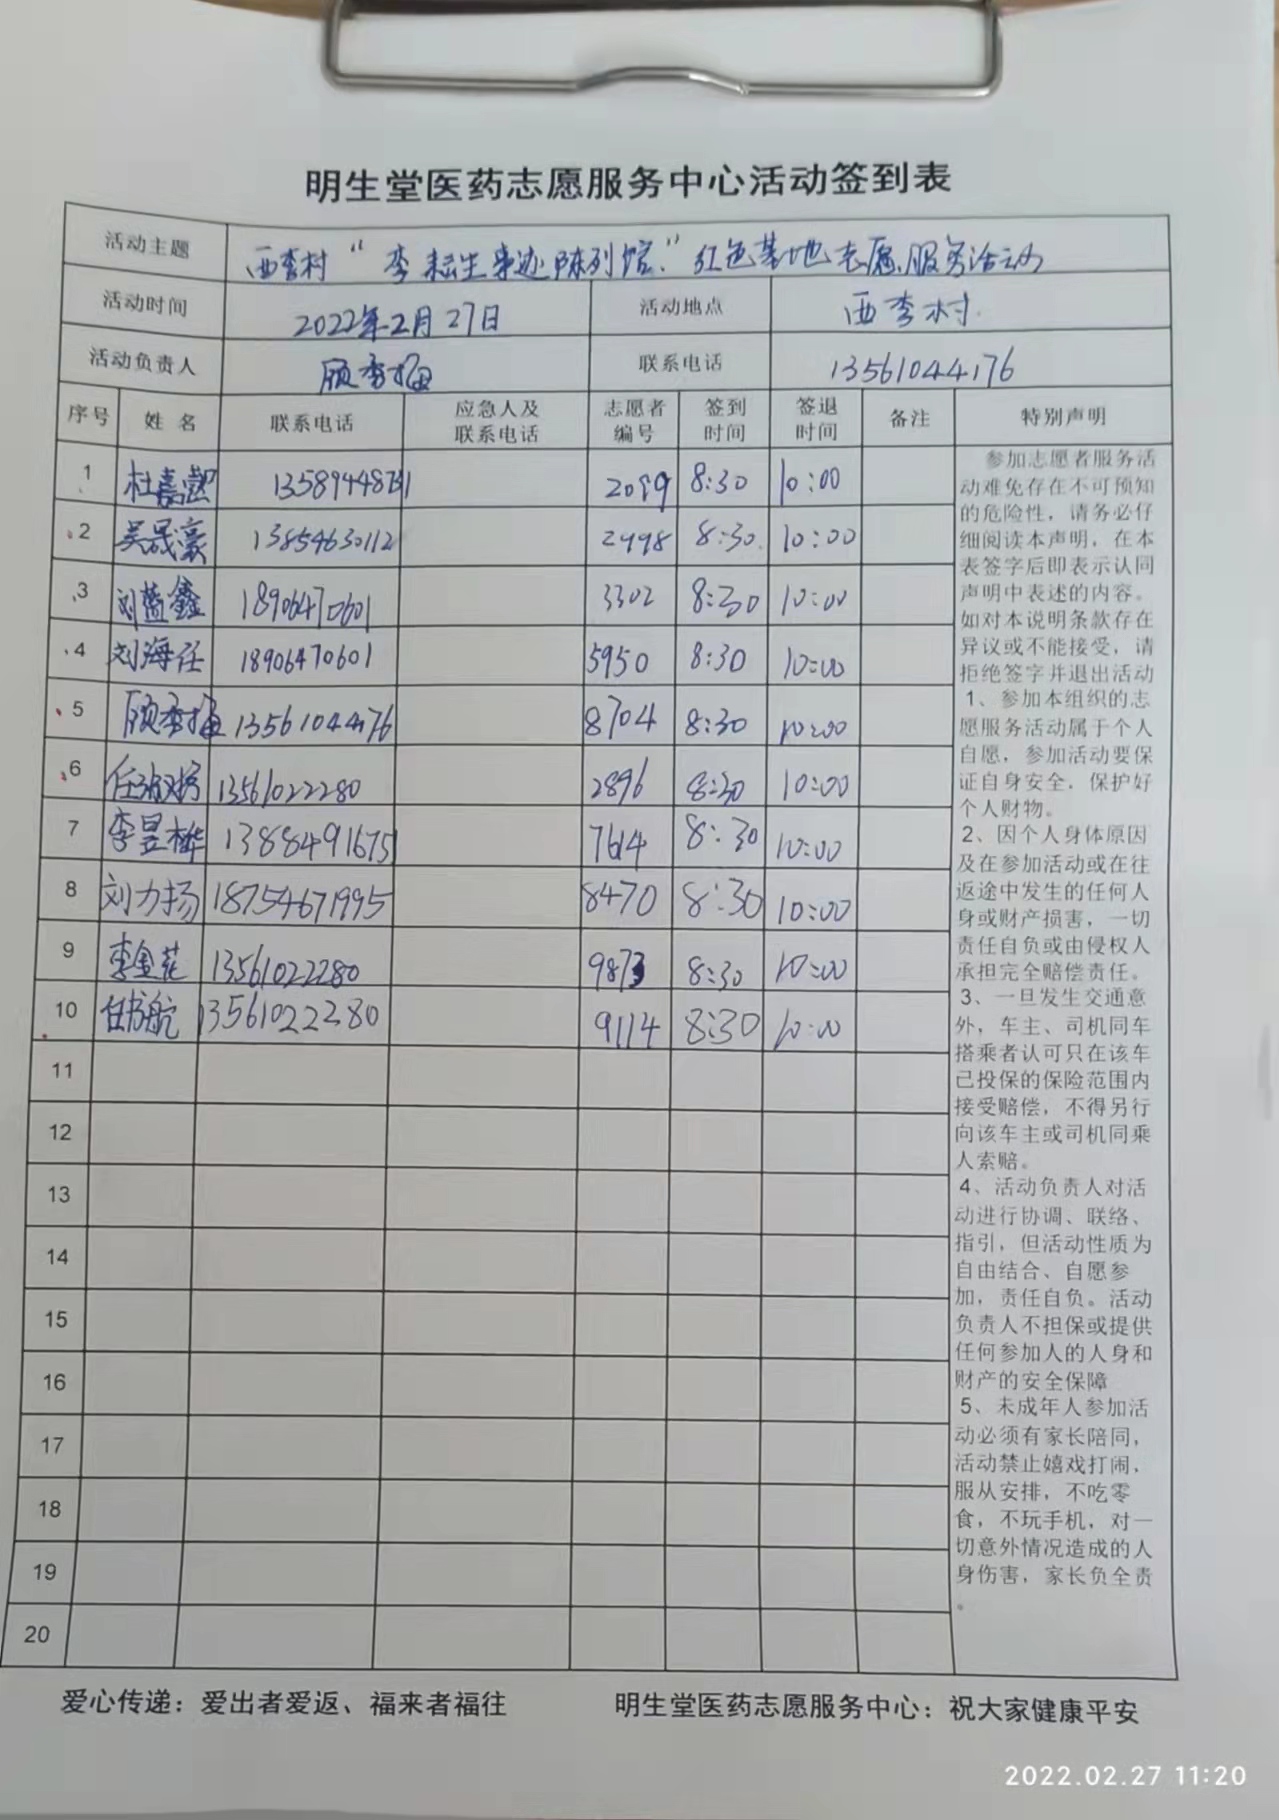 明生堂医药志愿服务中心活动签到表
活动主题 西李村“李耘生事迹陈列馆”红色基地志愿服务活动
活动时间 2022年2月27日 活动地点 西李村
活动负责人 顾秀梅 联系电话 13561044176
序号 姓名 联系电话 应急人及联系电话 志愿者编号 签到时间 签退时间 备注 特别声明
1 杜嘉懿 8:30 10:00
2 吴晟豪 13854630112 2998 8:30 10:00
3 刘蓝鑫 18906470601 3302 8:30 10:00
4 刘海任 18906470601 5950 8:30 10:00
5 顾秀梅 13561044176 8704 8:30 10:00
6 13561022280 2896 8:30 10:00
7 李昱桦 1388491675 7614 8:30 10:00
8 刘力扬 18754671995 8470 8:30 10:00
9 李金花 13561022280 9873 8:30 10:00
10 任书航 13561022280 9114 8:30 10:00
11
12
13
14
15
16
17
18
19
20
参加志愿者服务活
动难免存在不可预知
的危险性，请务必仔
细阅读本声明，在本
表签字后即表示认同
声明中表述的内容。
如对本说明条款存在
异议或不能接受，请
拒绝签字并退出活动
1、参加本组织的志
愿服务活动属于个人
自愿，参加活动要保
证自身安全，保护好
个人财物。
2、因个人身体原因
及在参加活动或在往
返途中发生的任何人
身或财产损害，一切
责任自负或由侵权人
承担完全赔偿责任。
3、一旦发生交通意
外，车主、司机同车
搭乘者认可只在该车
已投保的保险范围内
接受赔偿，不得另行
向该车主或司机同乘
人索赔。
4、活动负责人对活
动进行协调、联络、
指引，但活动性质为
自由结合、自愿参
加，责任自负。活动
负责人不担保或提供
任何参加人的人身和
财产的安全保障
5、未成年人参加活
动必须有家长陪同，
活动禁止嬉戏打闹，
服从安排，不吃零
食，不玩手机，对一
切意外情况造成的人
身伤害，家长负全责
。
爱心传递：爱出者爱返、福来者福往 明生堂医药志愿服务中心：祝大家健康平安
2022.02.27 11:20